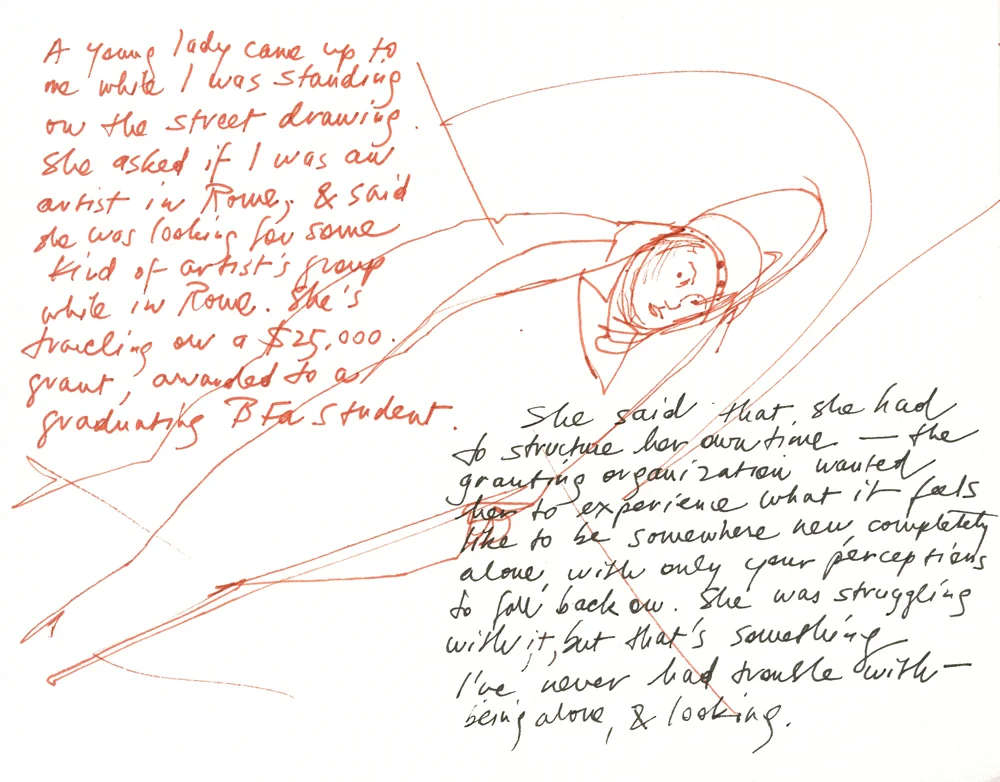 A young lady came up to
me while I was standing
on the street drawing.
She asked if I was an
artist in Rome, & said
she was looking for some
kind of artist's group
while in Rome. She's
traveling on a $25,000.
grant, awarded to a
graduating BFA student.
She said that she had
to structure her own time — the
granting organization wanted
her to experience what it feels
like to be somewhere new, completely
alone, with only your perceptions
to fall back on. She was struggling
with it, but that's something
I've never had trouble with—
being alone, & looking.